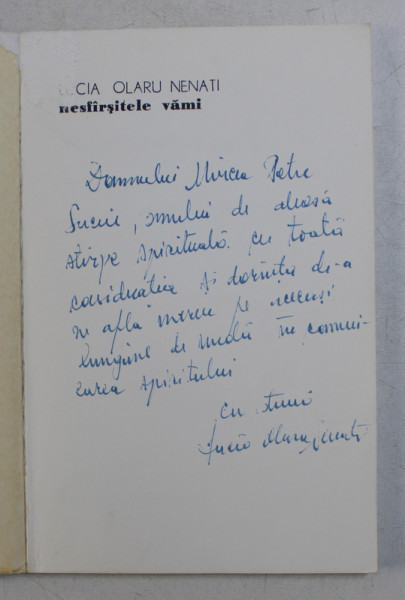 CIA OLARU NENATI
nesfîrşitele vămi
Domnului Mircea Petre
Suciu, omului de aleasă
stirpe spirituală cu toată
consideraţia şi dorinţa de-a
ne afla mereu pe aceeaşi
lungime de undă în comuni-
carea spiritului
Cu stimă
Lucia Olaru Nenati